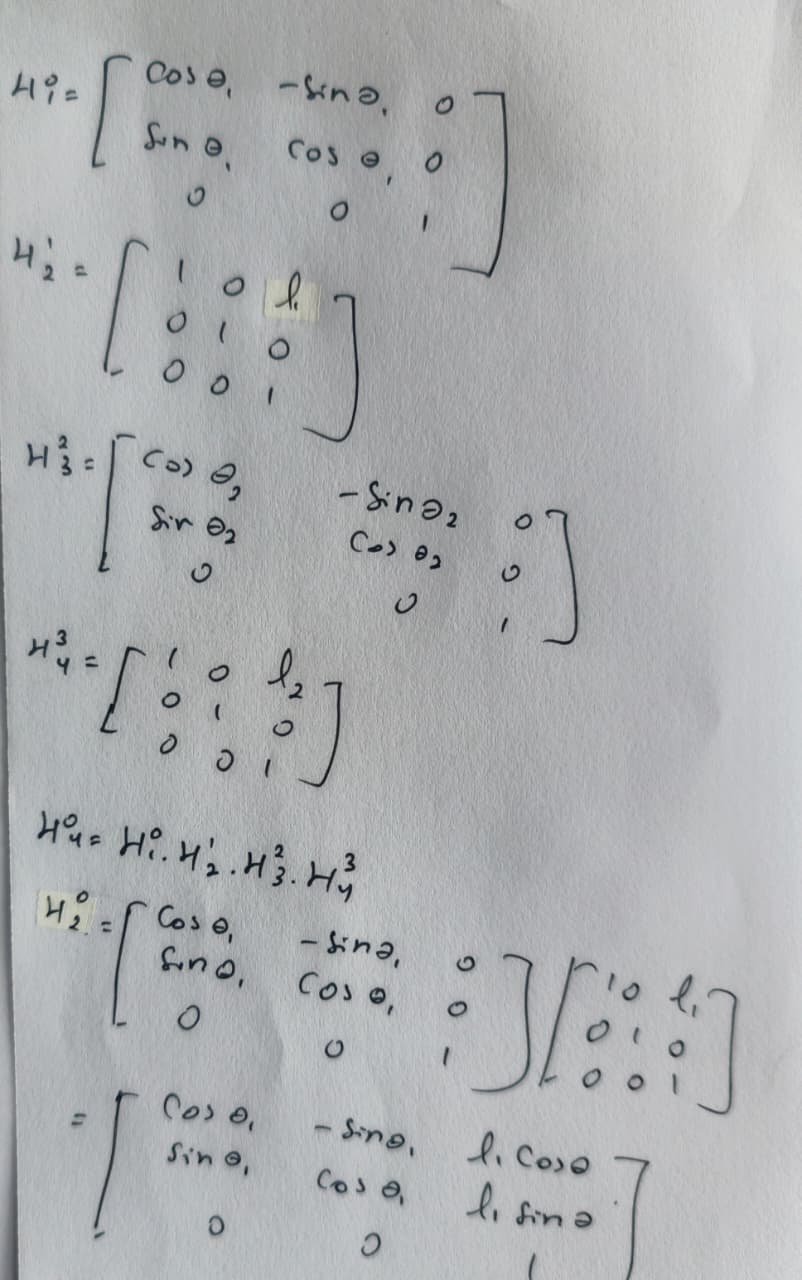 H⁰₁ = [ Cos θ₁ -Sin θ₁ 0
Sin θ₁ Cos θ₁ 0
0 0 1 ]
H¹₂ = [ 1 0 l₁
0 1 0
0 0 1 ]
H²₃ = [ Cos θ₂ -Sin θ₂ 0
Sin θ₂ Cos θ₂ 0
0 0 1 ]
H³₄ = [ 1 0 l₂
0 1 0
0 0 1 ]
H⁰₄ = H⁰₁. H¹₂. H²₃. H³₄
H⁰₂. = [ Cos θ₁ -Sin θ₁ 0 ] [ 1 0 l₁
Sin θ₁ Cos θ₁ 0 0 1 0
0 0 1 ] 0 0 1 ]
= [ Cos θ₁ -Sin θ₁ l₁ Cos θ
Sin θ₁ Cos θ₁ l₁ Sin θ
0 0 1 ]